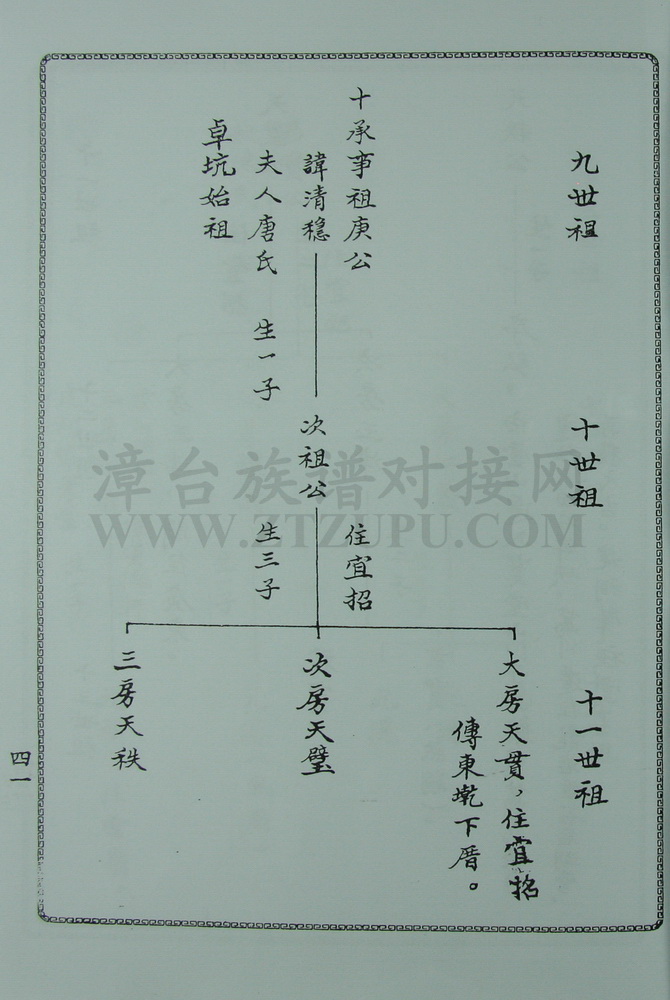 九世祖
十承事祖庚公
諱清穩
夫人唐氏 生一子
卓坑始祖
十世祖
次祖公
住宜招
生三子
十一世祖
大房天貫，住宜招
傳東墘下厝。
次房天璧
三房天秩
四一
漳台族谱对接网
WWW.ZTZUPU.COM